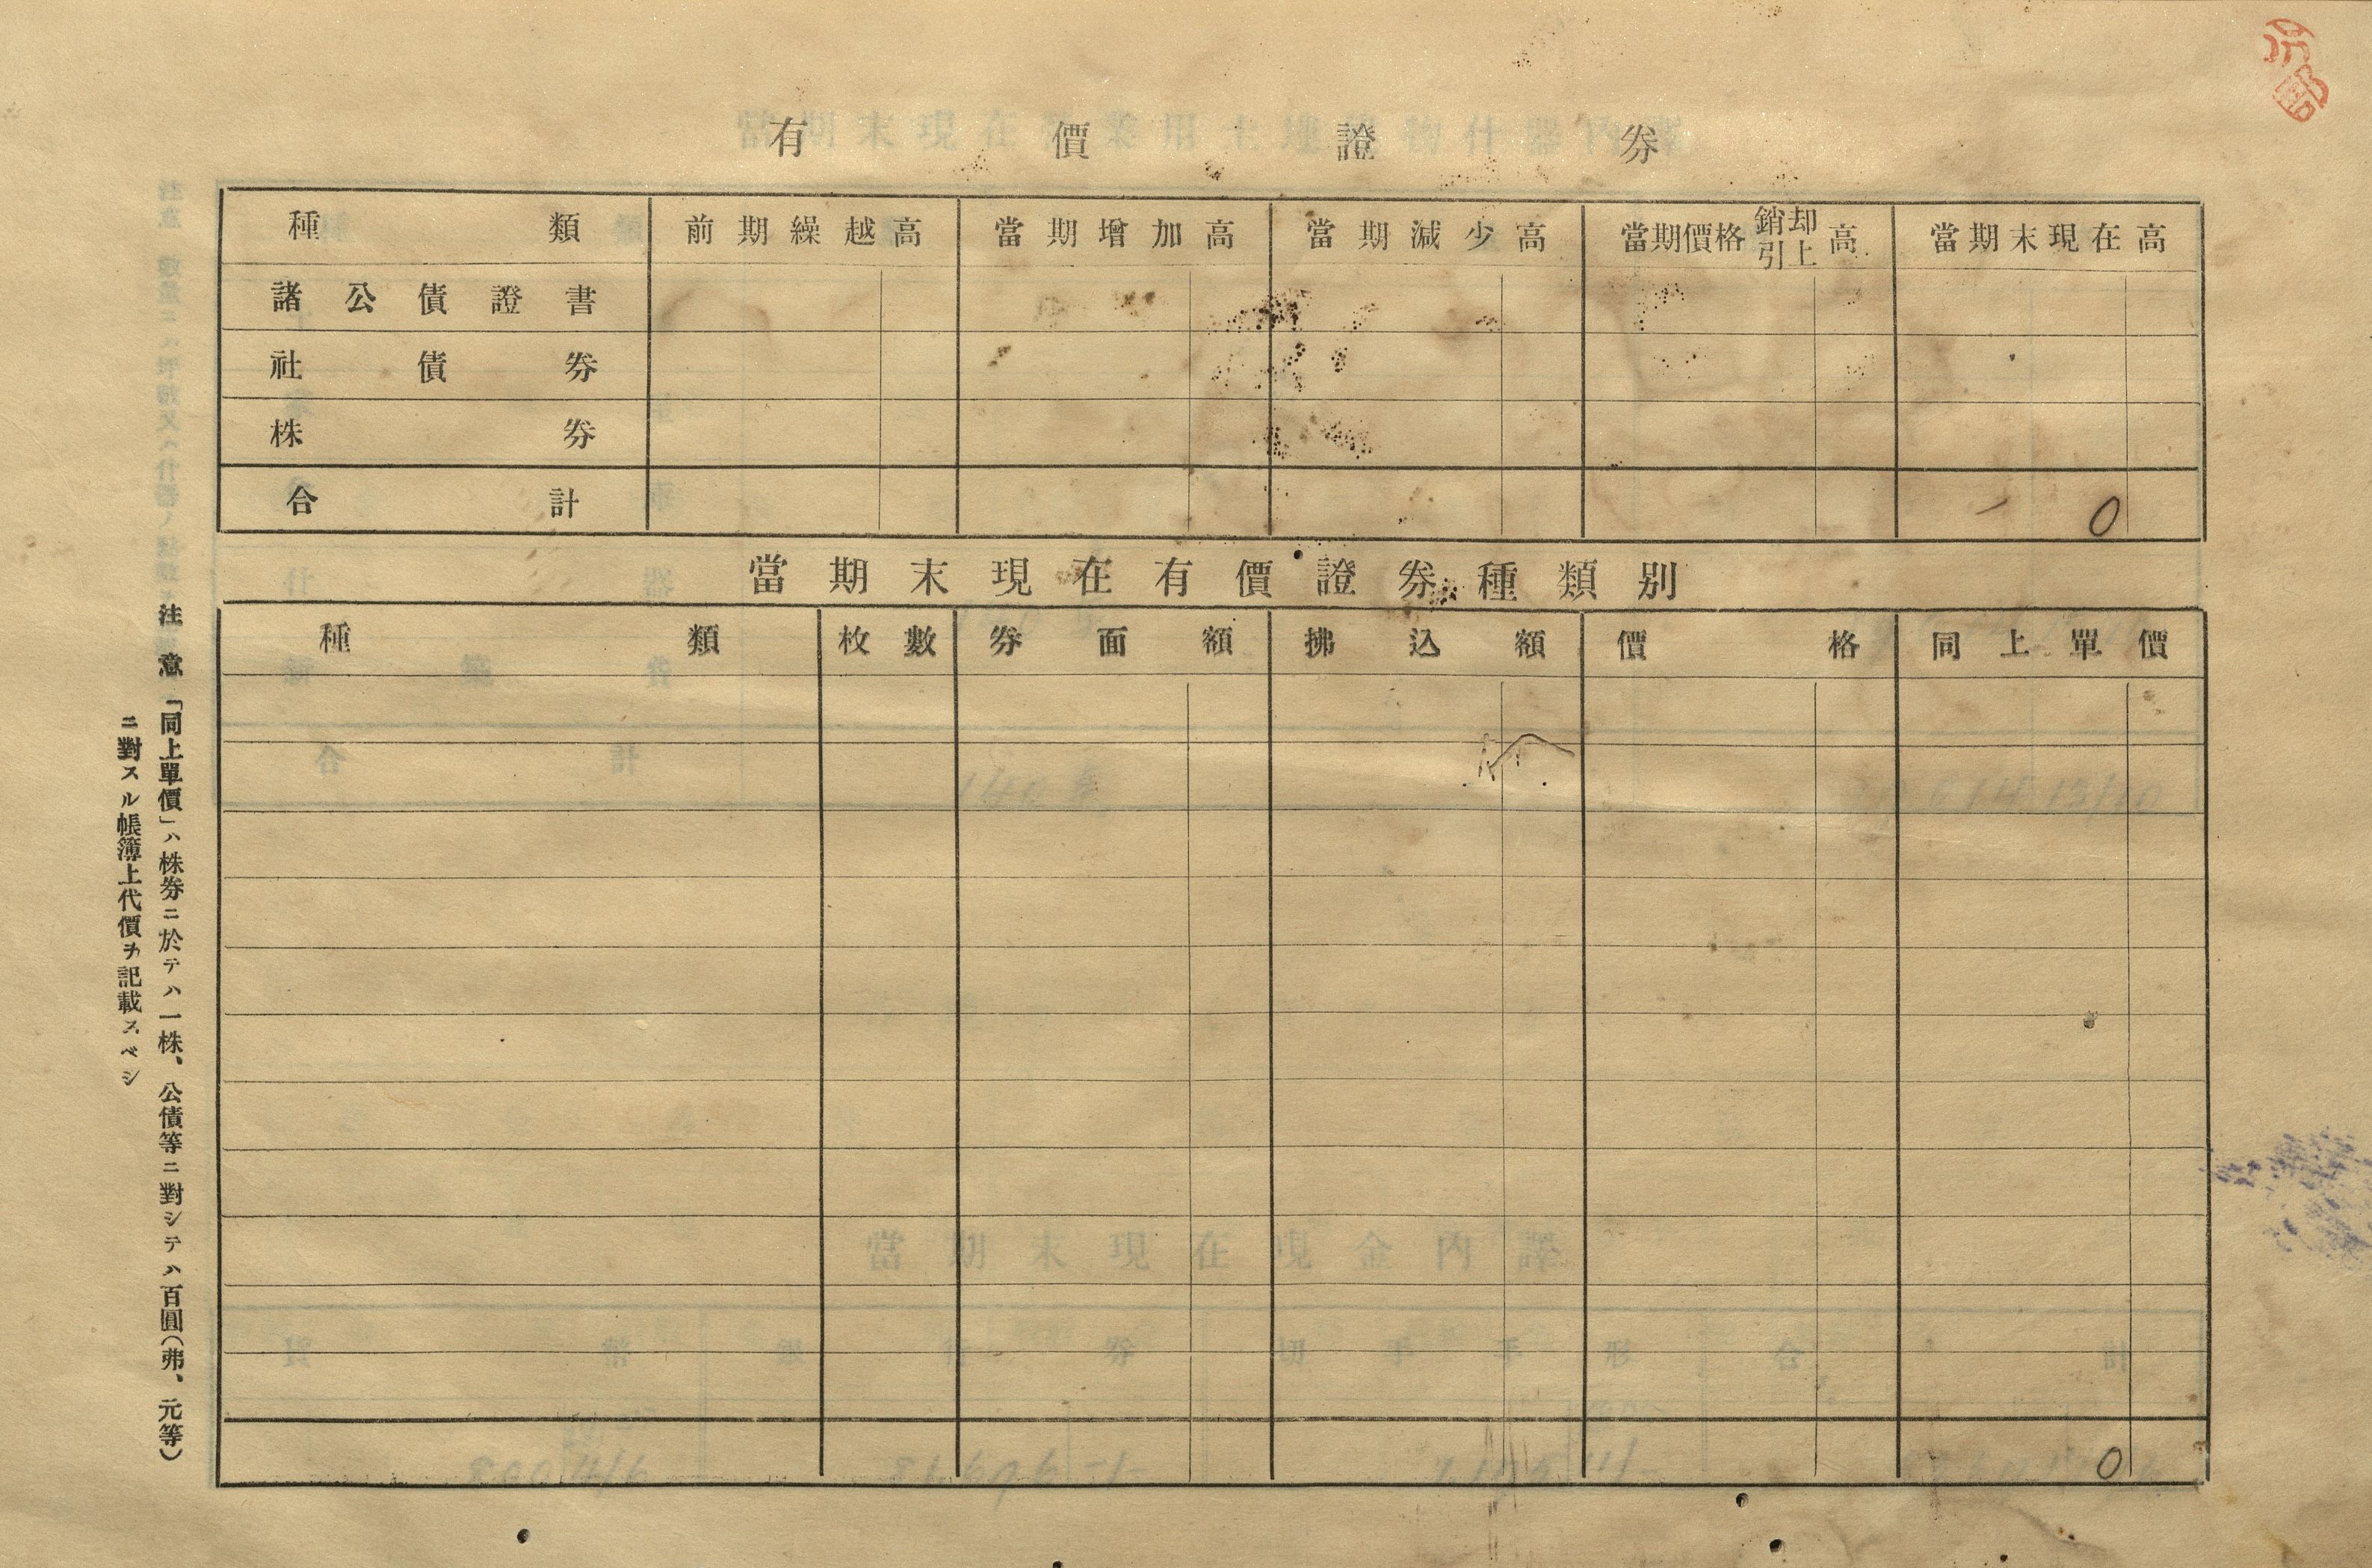 有價證券
種類 前期繰越高 當期增加高 當期減少高 當期價格銷却引上高 當期末現在高
諸公債證書
社債券
株券
合計 0
當期末現在有價證券種類別
種類 枚數 券面額 拂込額 價格 同上單價
0
注意 「同上單價」ハ株券ニ於テハ一株、公債等ニ對シテハ百圓(弗、元等)
ニ對スル帳簿上代價ヲ記載スベシ